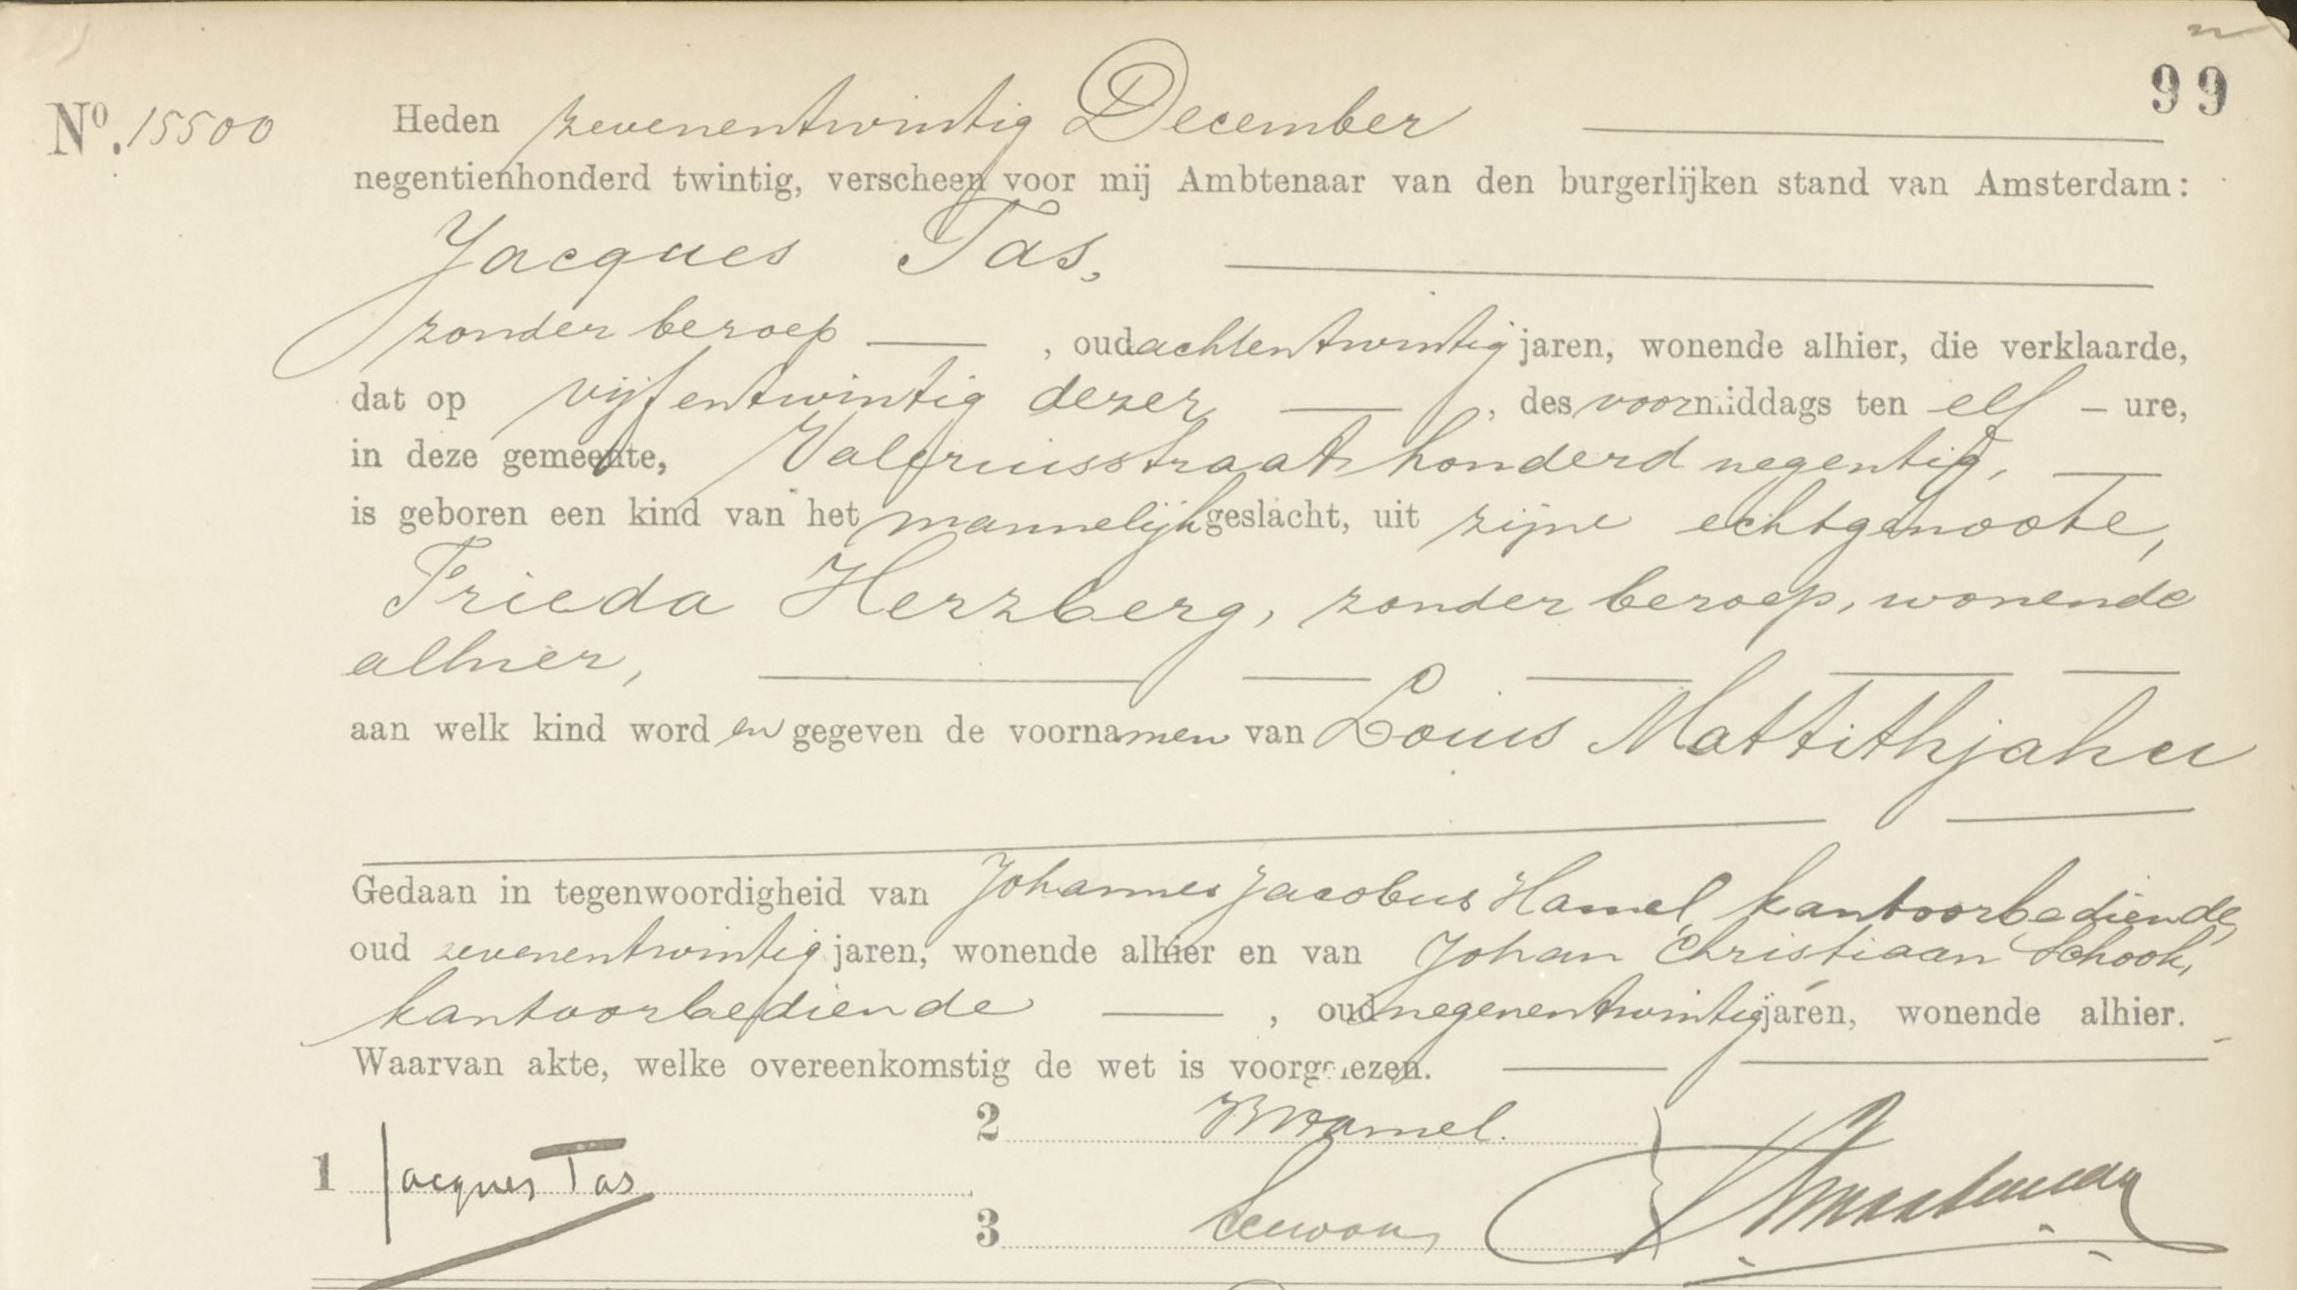 99
No. 15500 Heden zevenentwintig December
negentienhonderd twintig, verscheen voor mij Ambtenaar van den burgerlijken stand van Amsterdam:
Jacques Tas,
zonder beroep, oud achtentwintig jaren, wonende alhier, die verklaarde,
dat op vijfentwintig dezer, des voormiddags ten elf ure,
in deze gemeente, Valeriusstraat honderd negentig,
is geboren een kind van het mannelijk geslacht, uit zijne echtgenoote,
Frieda Herzberg, zonder beroep, wonende
alhier,
aan welk kind worden gegeven de voornamen van Louis Mattithjahu
Gedaan in tegenwoordigheid van Johannes Jacobus Hamel, kantoorbediende,
oud zevenentwintig jaren, wonende alhier en van Johan Christiaan Schook,
kantoorbediende, oud negenentwintig jaren, wonende alhier.
Waarvan akte, welke overeenkomstig de wet is voorgelezen.
1 Jacques Tas
2
3